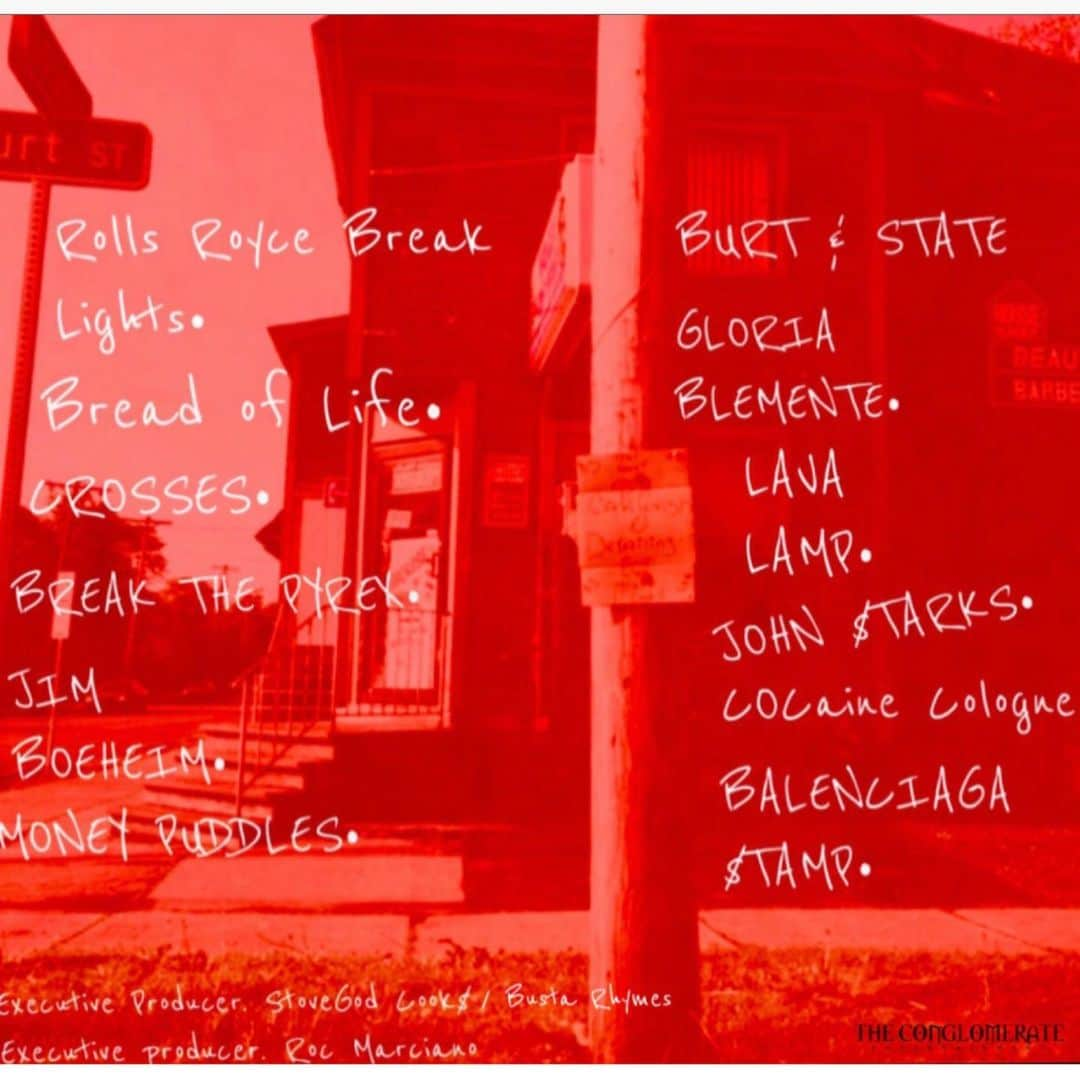 urt ST
Rolls Royce Break
Lights.
Bread of Life.
CROSSES.
BREAK THE PYREX.
JIM
BOEHEIM.
MONEY PUDDLES.
BURT & STATE
GLORIA
BLEMENTE.
LAVA
LAMP.
JOHN $TARKS.
COCaine Cologne
BALENCIAGA
$TAMP.
BEAU
BARBE
Executive Producer. StoveGod Cook$ / Busta Rhymes
Executive producer. Roc Marciano
THE CONGLOMERATE